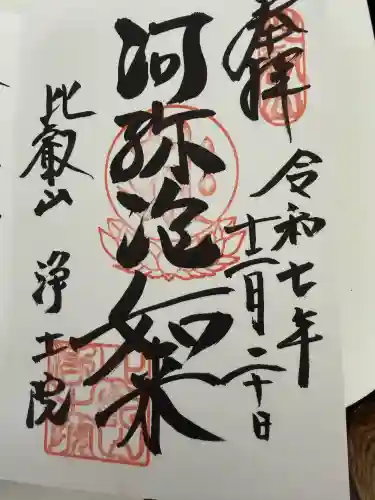 奉拝
令和七年
十一月二十日
阿弥陀如来
比叡山 浄土院